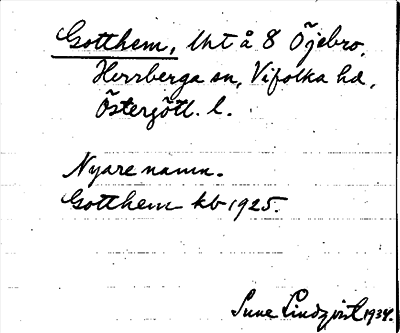 Gotthem, lht å 8 Öjebro,
Herrberga sn, Vifolka hd,
Östergötl. l.
Nyare namn.
Gotthem kb 1925.
Sune Lindqvist 1934.